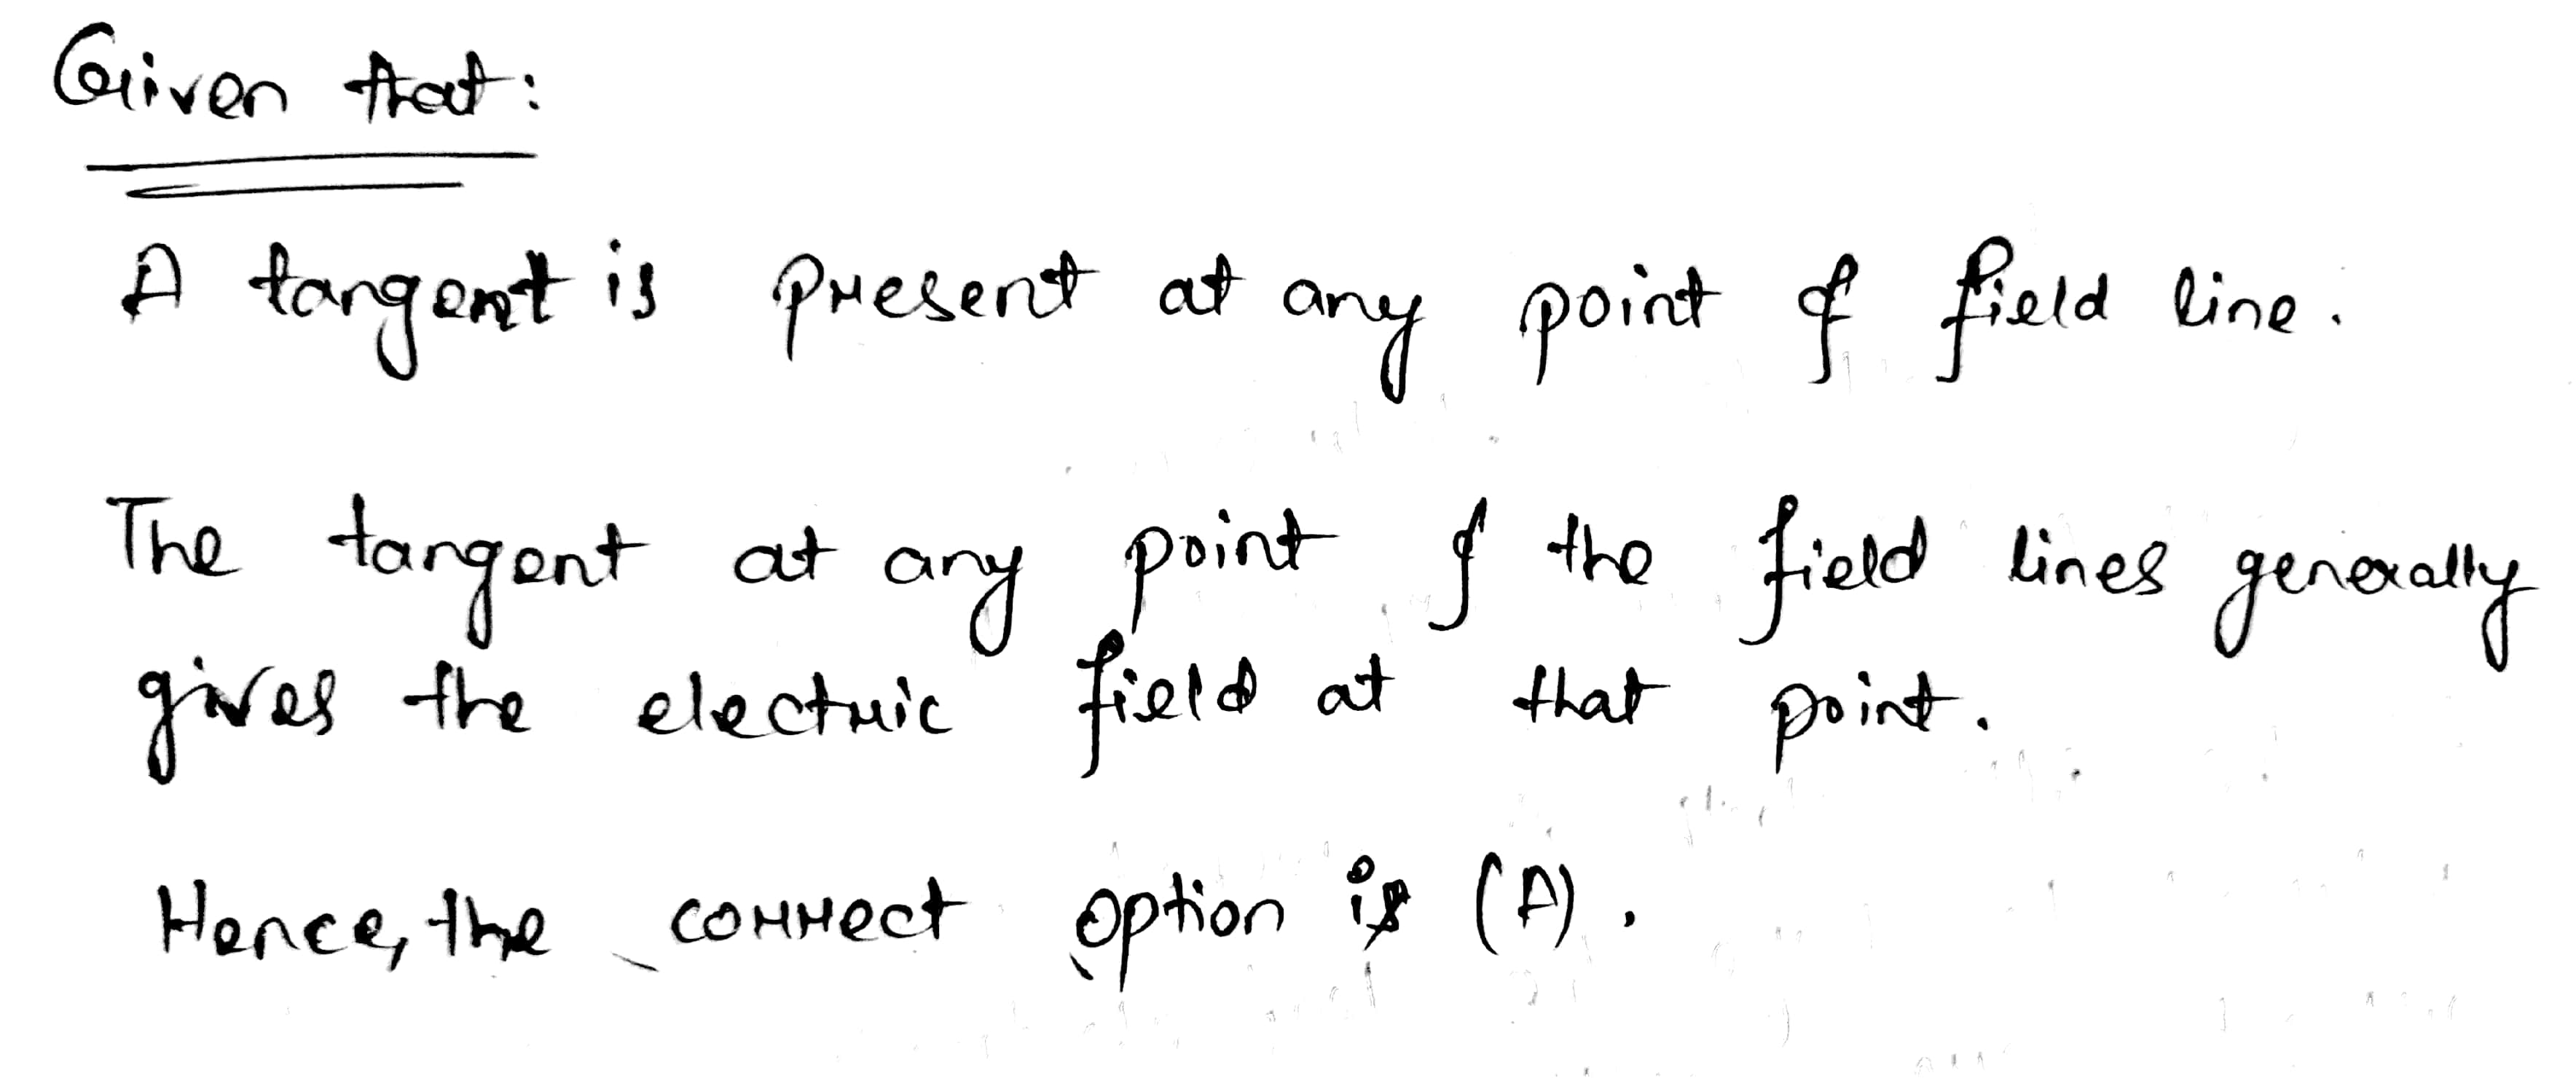 Given that:
A tangent is present at any point of field line.
The tangent at any point of the field lines generally
gives the electric field at that point.
Hence, the correct option is (A).